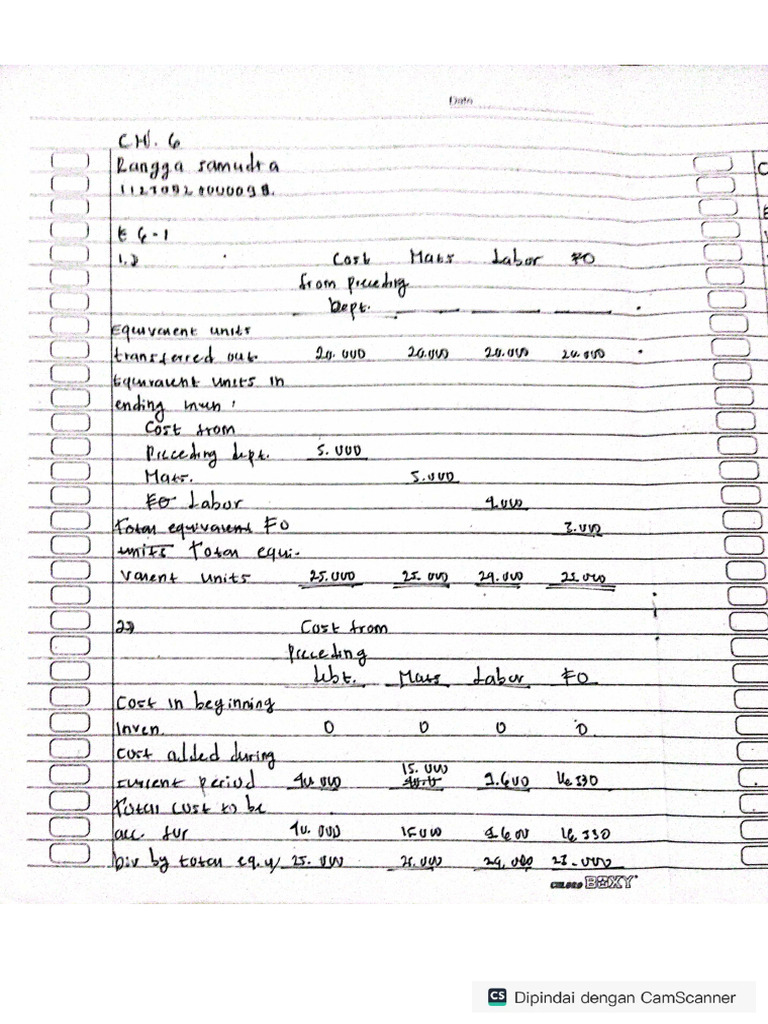 Date
CH. 6
Rangga Samudra
E 6-1
1.) Cost Mats Labor FO
from preceding
Dept.
Equivalent units
transferred out 20.000 20.000 20.000 20.000
Equivalent units in
ending inven :
Cost from
Preceding dept. 5.000
Mats. 5.000
FO Labor 4.000
Total equivalent FO 3.000
units Total equi-
valent units 25.000 25.000 24.000 23.000
2) Cost from
Preceding
Dept. Mats Labor FO
Cost in beginning
Inven. 0 0 0 0
Cost added during
15.000
current period 40.000 9.600
Total cost to be
acc. for 40.000 15.000 9.600
Div by total eq.u/ 25.000 25.000 24.000 23.000
BOXY
CS Dipindai dengan CamScanner